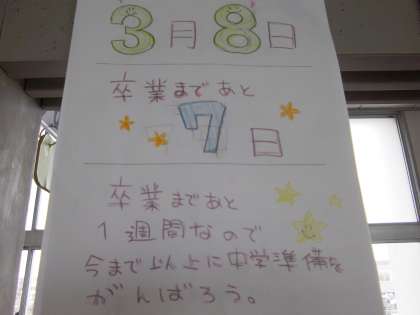 3月8日
卒業まであと
7日
卒業まであと
1週間なので
今まで以上に中学準備を
がんばろう。